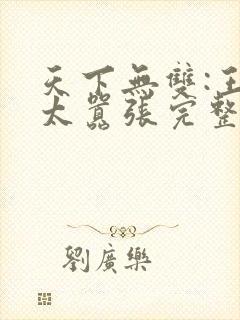 天下無雙:王
太囂張完整
劉廣樂